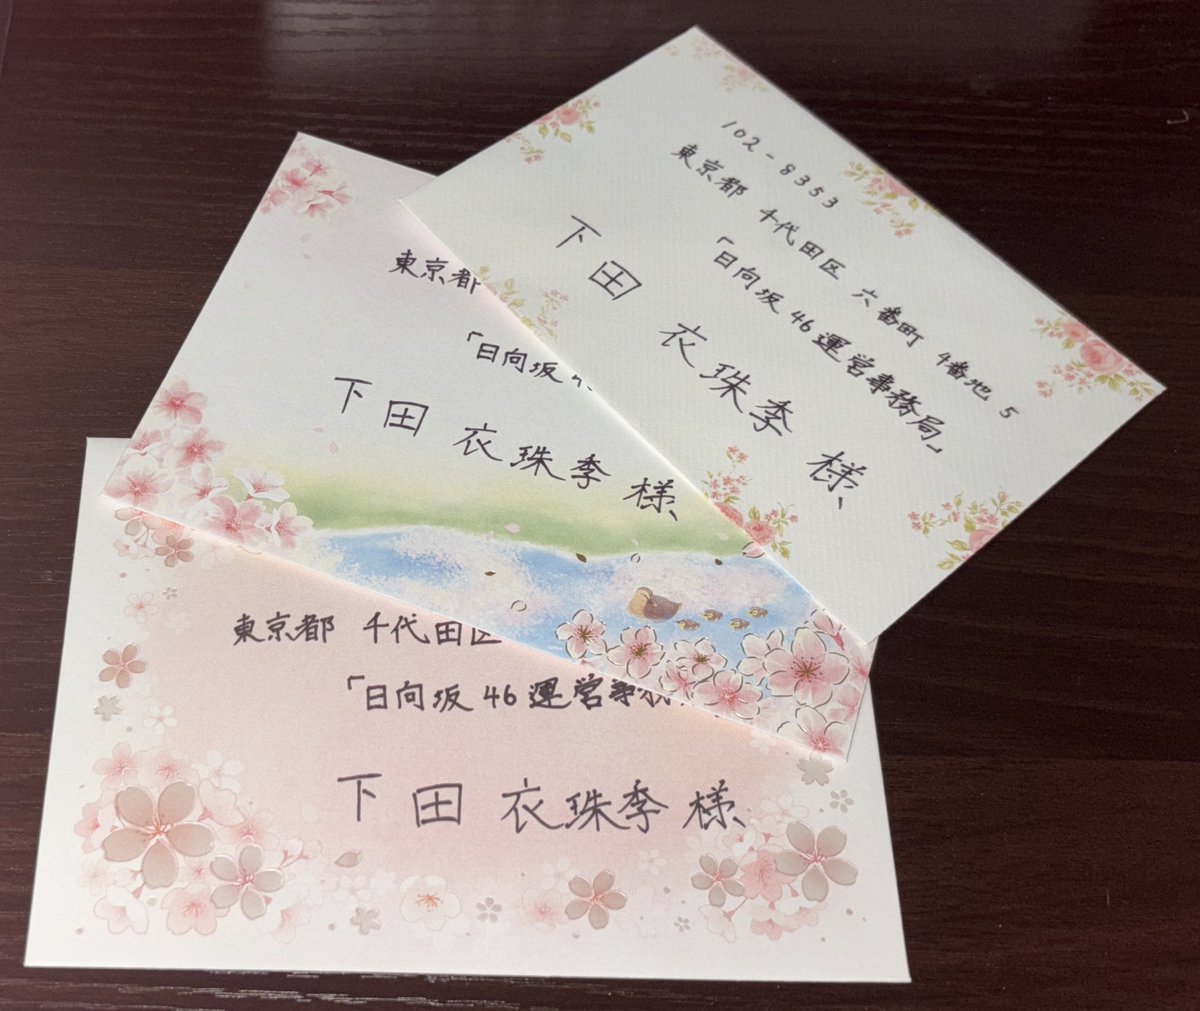 102-8353
東京都 千代田区 六番町 4番地 5
「日向坂46運営事務局」
下田 衣珠季 様
東京都
「日向坂
下田 衣珠季 様
東京都 千代田区
「日向坂46運営事
下田 衣珠季 様